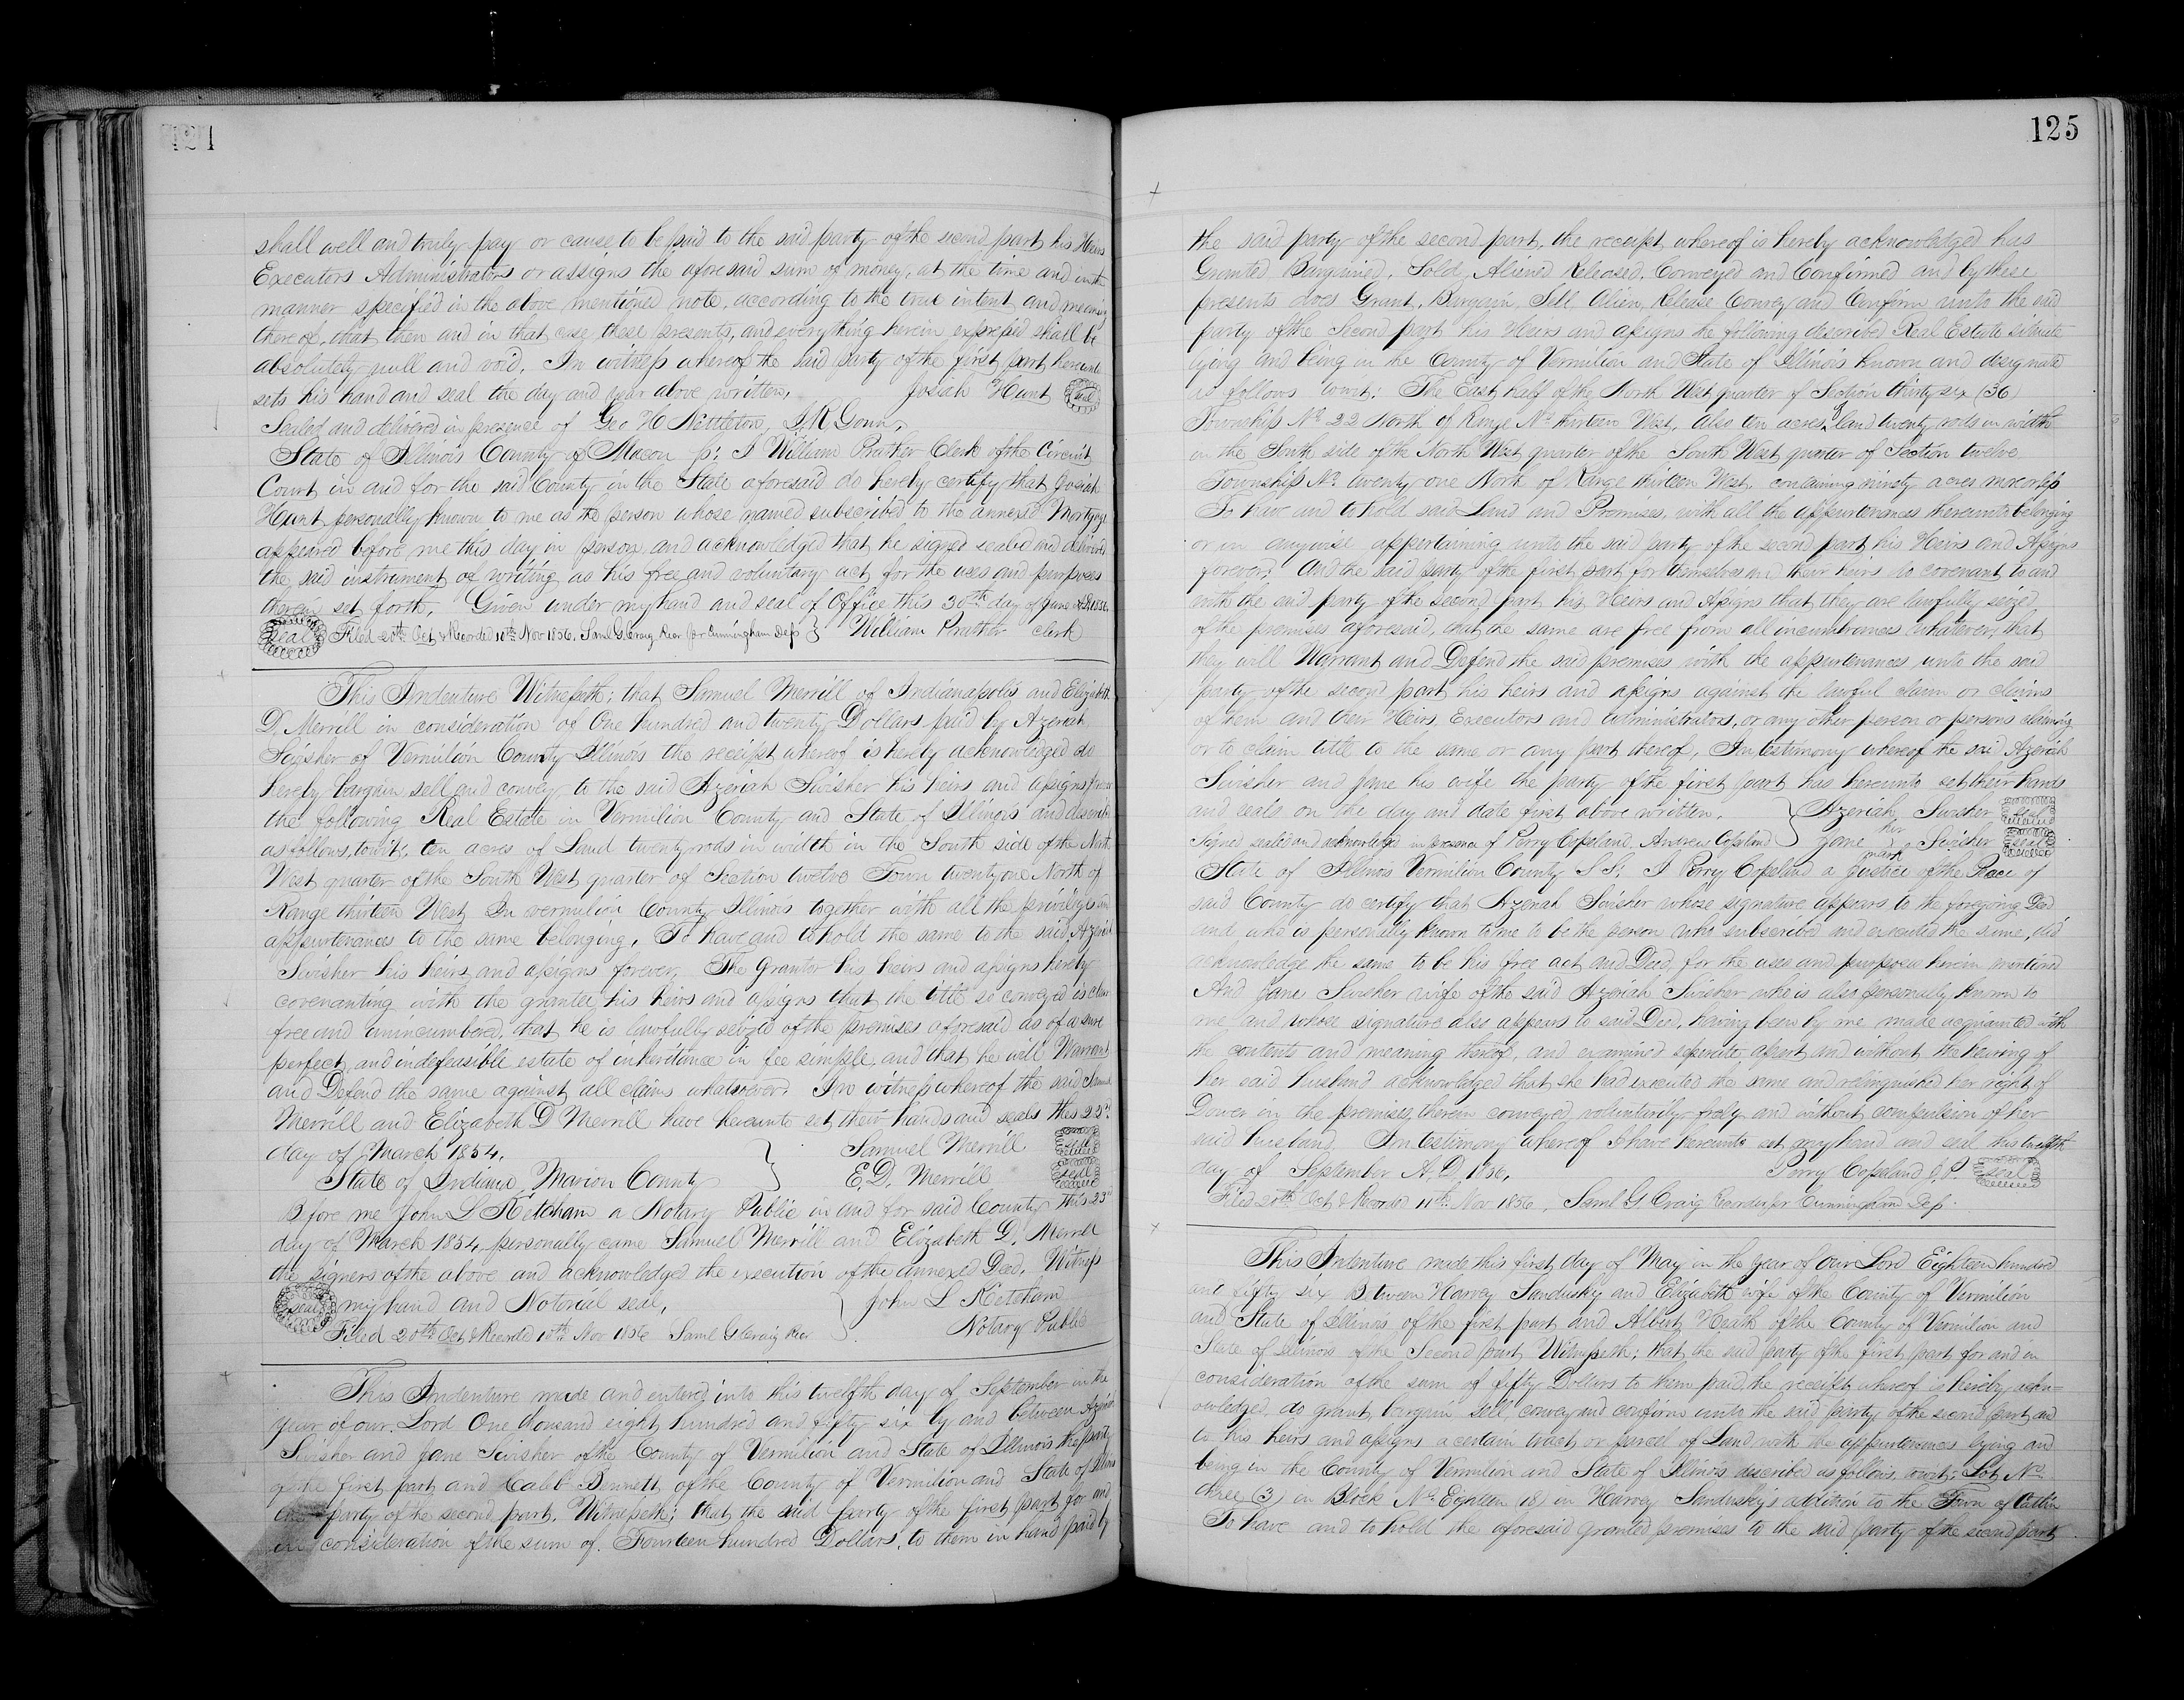 124
shall well and truly pay or cause to be paid to the said party of the second part his Heirs
Executors Administrators or assigns the aforesaid sum of money, at the time and in the
manner specified in the above mentioned note, according to the true intent and meaning
thereof, that then and in that case these presents, and everything herein expressed shall be
absolutely null and void. In witness whereof the said party of the first part hereunto
sets his hand and seal the day and year above written, Josiah Hunt seal
Sealed and delivered in presence of Geo H Nettleton, J.R. Gorin,
State of Illinois County of Macon ss: I William Prather Clerk of the Circuit
Court in and for the said County in the State aforesaid do hereby certify that Josiah
Hunt personally known to me as the person whose named subscribed to the annexed Mortgage
appeared before me this day in person and acknowledged that he signed sealed and delivered
the said instrument of writing as his free and voluntary act for the uses and purposes
therein set forth. Given under my hand and seal of Office this 30th day of June AD 1856.
seal Filed 20th Oct & Recorded 10th Nov 1856, Saml G. Craig Recr per Cunningham Dep } William Prather Clerk
This Indenture Witnesseth: that Samuel Merrill of Indianapolis and Elizabeth
D. Merrill in consideration of One hundred and twenty Dollars paid by Azeriah
Swisher of Vermilion County Illinois the receipt whereof is hereby acknowledged do
hereby bargain sell and convey to the said Azeriah Swisher his heirs and assigns forever
the following Real Estate in Vermilion County and State of Illinois and described
as follows, towit, ten acres of Land twenty rods in width in the South side of the North
West quarter of the South West quarter of Section twelve Town twenty one North of
Range thirteen West In vermilion County Illinois together with all the privileges and
appurtenances to the same belonging, To have and to hold the same to the said Azeriah
Swisher his heirs and assigns forever, The Grantor his heirs and assigns hereby
covenanting with the grantee his heirs and assigns that the title so conveyed is clear
free and unincumbered, that he is lawfully seized of the premises aforesaid as of a sure
perfect and indefeasible estate of inheritance in fee simple, and that he will Warrant
and Defend the same against all claims whatsoever. In witness whereof the said Samuel
Merrill and Elizabeth D Merrill have hereunto set their hands and seals this 23rd
day of March 1854. } Samuel Merrill seal
State of Indiana, Marion County E.D. Merrill seal
Before me John L Ketcham a Notary Public in and for said County this 23rd
day of March 1854 personally came Samuel Merrill and Elizabeth D. Merrill
the signers of the above and acknowledged the execution of the annexed Deed. Witness
seal my hand and Notorial seal, } John L Ketcham
Filed 20th Oct & Recorded 10th Nov 1856 Saml G Craig Recr Notary Public
This Indenture made and entered into this twelfth day of September in the
year of our Lord One thousand eight hundred and fifty six by and between Azeriah
Swisher and Jane Swisher of the County of Vermilion and State of Illinois the party
of the first part and Caleb Bennett of the County of Vermilion and State of Illinois
the party of the second part, Witnesseth; that the said party of the first part for and
in consideration of the sum of Fourteen hundred Dollars, to them in hand paid by
125
the said party of the second part, the receipt whereof is hereby acknowledged has
Granted Bargained, Sold, Aliened Released, Conveyed and Confirmed and by these
presents does Grant, Bargain Sell Alien, Release Convey and Confirm unto the said
party of the Second part his Heirs and assigns the following described Real Estate situate
lying and being in the County of Vermilion and State of Illinois known and designated
as follows towit: The East half of the North West quarter of Section thirty six (36)
Township No 22 North of Range No thirteen West, also ten acres of land twenty rods in width
in the South side of the North West quarter of the South West quarter of Section twelve
Township No twenty one North of Range thirteen West, containing ninety acres more or less
To have and to hold said Land and Premises, with all the appurtenances thereunto belonging
or in anywise appertaining unto the said party of the second part his Heirs and Assigns
forever: And the said party of the first part for themselves and their heirs do covenant to and
with the said party of the second part his Heirs and Assigns that they are lawfully seized
of the premises aforesaid, that the same are free from all incumbrances whatever, that
they will Warrant and Defend the said premises with the appurtenances unto the said
party of the second part his heirs and assigns against the lawful claim or claims
of them and their Heirs, Executors and administrators, or any other person or persons claiming
or to claim title to the same or any part thereof, In testimony whereof the said Azeriah
Swisher and Jane his wife the party of the first part has hereunto set their hands
and seals on the day and date first above written, } Azeriah Swisher seal
Signed sealed and acknowledged in presence of Perry Copeland, Andrew Copeland } Jane her mark Swisher seal
State of Illinois Vermilion County S.S: I Perry Copeland a Justice of the Peace of
said County do certify that Azeriah Swisher whose signature appears to the foregoing Deed
and who is personally known to me to be the person who subscribed and executed the same, did
acknowledge the same to be his free act and Deed, for the uses and purposes herein mentioned
And Jane Swisher wife of the said Azeriah Swisher who is also personally known to
me and whose signature also appears to said Deed, having been by me made acquainted with
the contents and meaning thereof, and examined seperate, apart and without the hearing of
her said husband acknowledged that she had executed the same and relinquished her right of
Dower in the premises, therein conveyed voluntarily freely and without compulsion of her
said husband. In testimony whereof I have hereunto set my hand and seal this twelfth
day of September A.D. 1856, Perry Copeland J.P. seal
Filed 20th Oct & Recorded 11th Nov 1856, Saml G. Craig Recorder per Cunningham Dep.
This Indenture made this first day of May in the year of Our Lord Eighteen hundred
and fifty six Between Harvey Sandusky and Elizabeth wife of the County of Vermilion
and State of Illinois of the first part and Albert Heath of the County of Vermilion and
State of Illinois of the Second part Witnesseth; that the said party of the first part for and in
consideration of the sum of fifty Dollars to them paid, the receipt whereof is hereby ackn=
owledged, do grant, bargain sell, convey and confirm unto the said party of the second part and
to his heirs and assigns a certain tract or parcel of Land with the appurtenances lying and
being in the County of Vermilion and State of Illinois described as follows, towit: Lot No
three (3) in Block No Eighteen (18) in Harvey Sandusky's addition to the Town of Catlin
To have and to hold the aforesaid granted premises to the said party of the second part